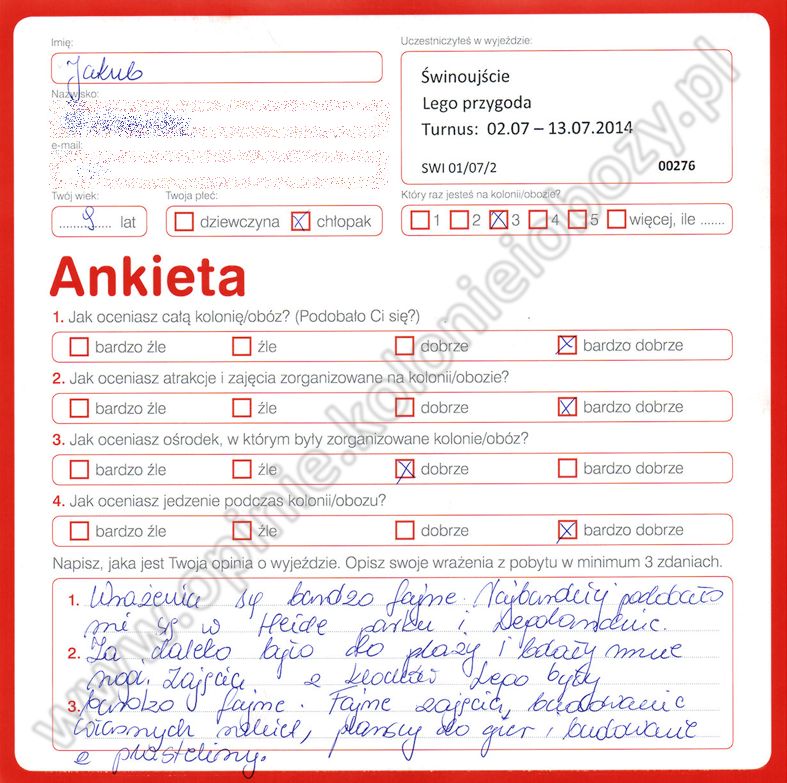 Imię:
Jakub
Nazwisko:
e-mail:
Twój wiek:
9 lat
Twoja płeć:
dziewczyna chłopak
Uczestniczyłeś w wyjeździe:
Świnoujście
Lego przygoda
Turnus: 02.07 – 13.07.2014
SWI 01/07/2 00276
Który raz jesteś na kolonii/obozie?
1 2 3 4 5 więcej, ile .......
Ankieta
1. Jak oceniasz całą kolonię/obóz? (Podobało Ci się?)
bardzo źle źle dobrze bardzo dobrze
2. Jak oceniasz atrakcje i zajęcia zorganizowane na kolonii/obozie?
bardzo źle źle dobrze bardzo dobrze
3. Jak oceniasz ośrodek, w którym były zorganizowane kolonie/obóz?
bardzo źle źle dobrze bardzo dobrze
4. Jak oceniasz jedzenie podczas kolonii/obozu?
bardzo źle źle dobrze bardzo dobrze
Napisz, jaka jest Twoja opinia o wyjeździe. Opisz swoje wrażenia z pobytu w minimum 3 zdaniach.
1. Wrażenia są bardzo fajne. Najbardziej podobało
mi się w Heide parku i Legolandzie.
2. Za daleko było do plaży i bolały mnie
nogi. Zajęcia z klocków Lego były
3. bardzo fajne. Fajne zajęcia, budowanie
własnych makiet, planszy do gier i budowanie
z plasteliny.
www.opinie.kolonieiobozy.pl